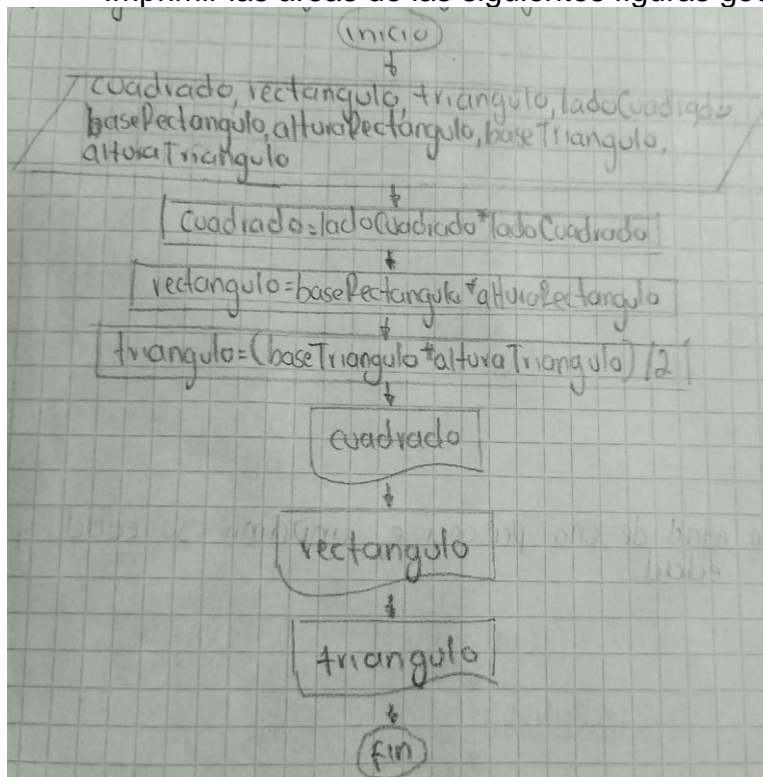 Imprimir las áreas de las siguientes figuras geo
inicio
cuadrado, rectangulo, triangulo, ladoCuadrado,
baseRectangulo, alturaRectángulo, baseTriangulo,
alturaTriangulo
cuadrado=ladoCuadrado*ladoCuadrado
rectangulo=baseRectangulo*alturaRectangulo
triangulo=(baseTriangulo*alturaTriangulo)/2
cuadrado
rectangulo
triangulo
fin